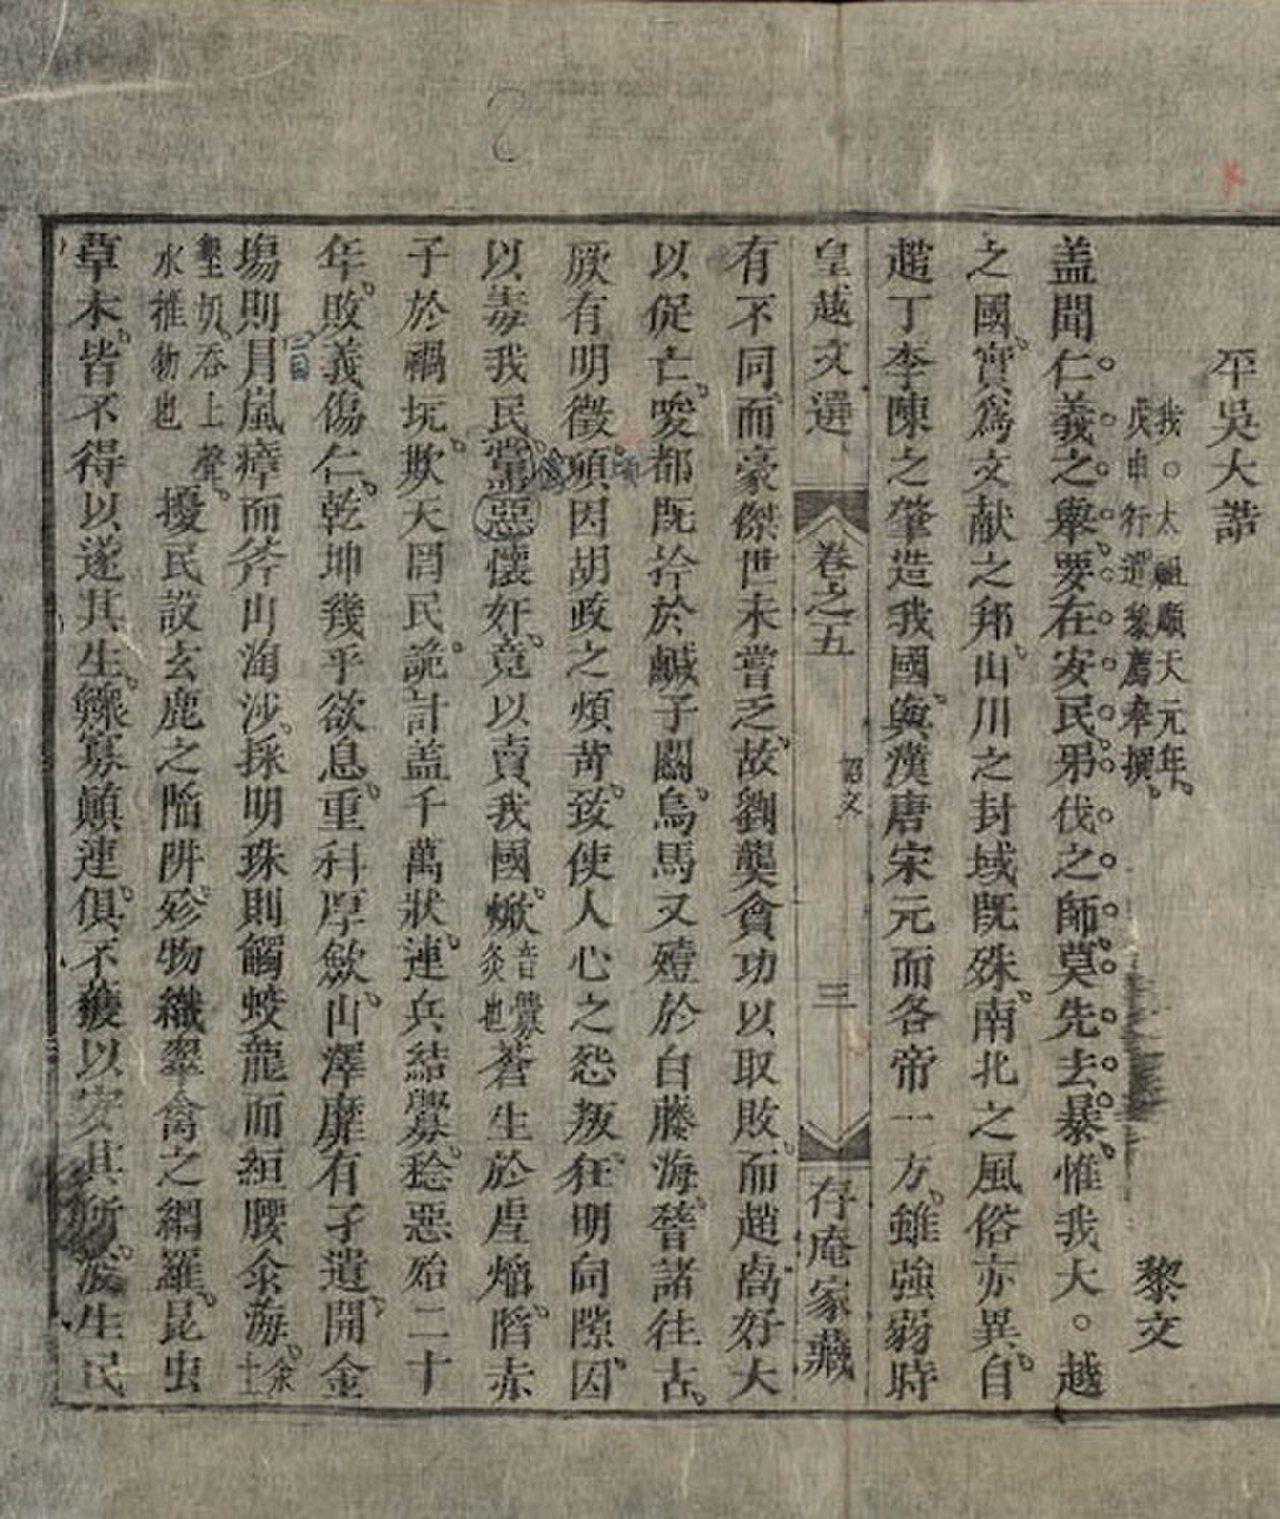 平吳大誥
我○太祖順天元年
戊申行遣黎薦奉撰
黎文
盖聞仁義之舉要在安民弔伐之師莫先去暴惟我大○越
之國實為文献之邦山川之封域既殊南北之風俗亦異自
趙丁李陳之肇造我國與漢唐宋元而各帝一方雖強弱時
皇越文選
卷之五
詔文
三
存庵家藏
有不同而豪傑世未嘗乏故劉龑貪功以取敗而趙卨好大
以促亡唆都既拎於鹹子關烏馬又殪於白藤海嵆諸往古
厥有明徵頃因胡政之煩苛致使人心之怨叛狂明伺隙因
以毒我民黨惡懷奸竟以賣我國焮
音釁
炎也
蒼生於虐焰陷赤
子於禍坑欺天罔民詭計盖千萬狀連兵結釁稔惡殆二十
年敗義傷仁乾坤幾乎欲息重科厚歛山澤靡有孑遺開金
塲則冒嵐瘴而斧山淘沙採明珠則觸蛟龍而絙腰汆海
汆
土
墾切吞上聲
水推物也
擾民設玄鹿之陷阱殄物織翠禽之網羅昆虫
草木皆不得以遂其生鰥寡顛連俱不獲以安其所浚生民